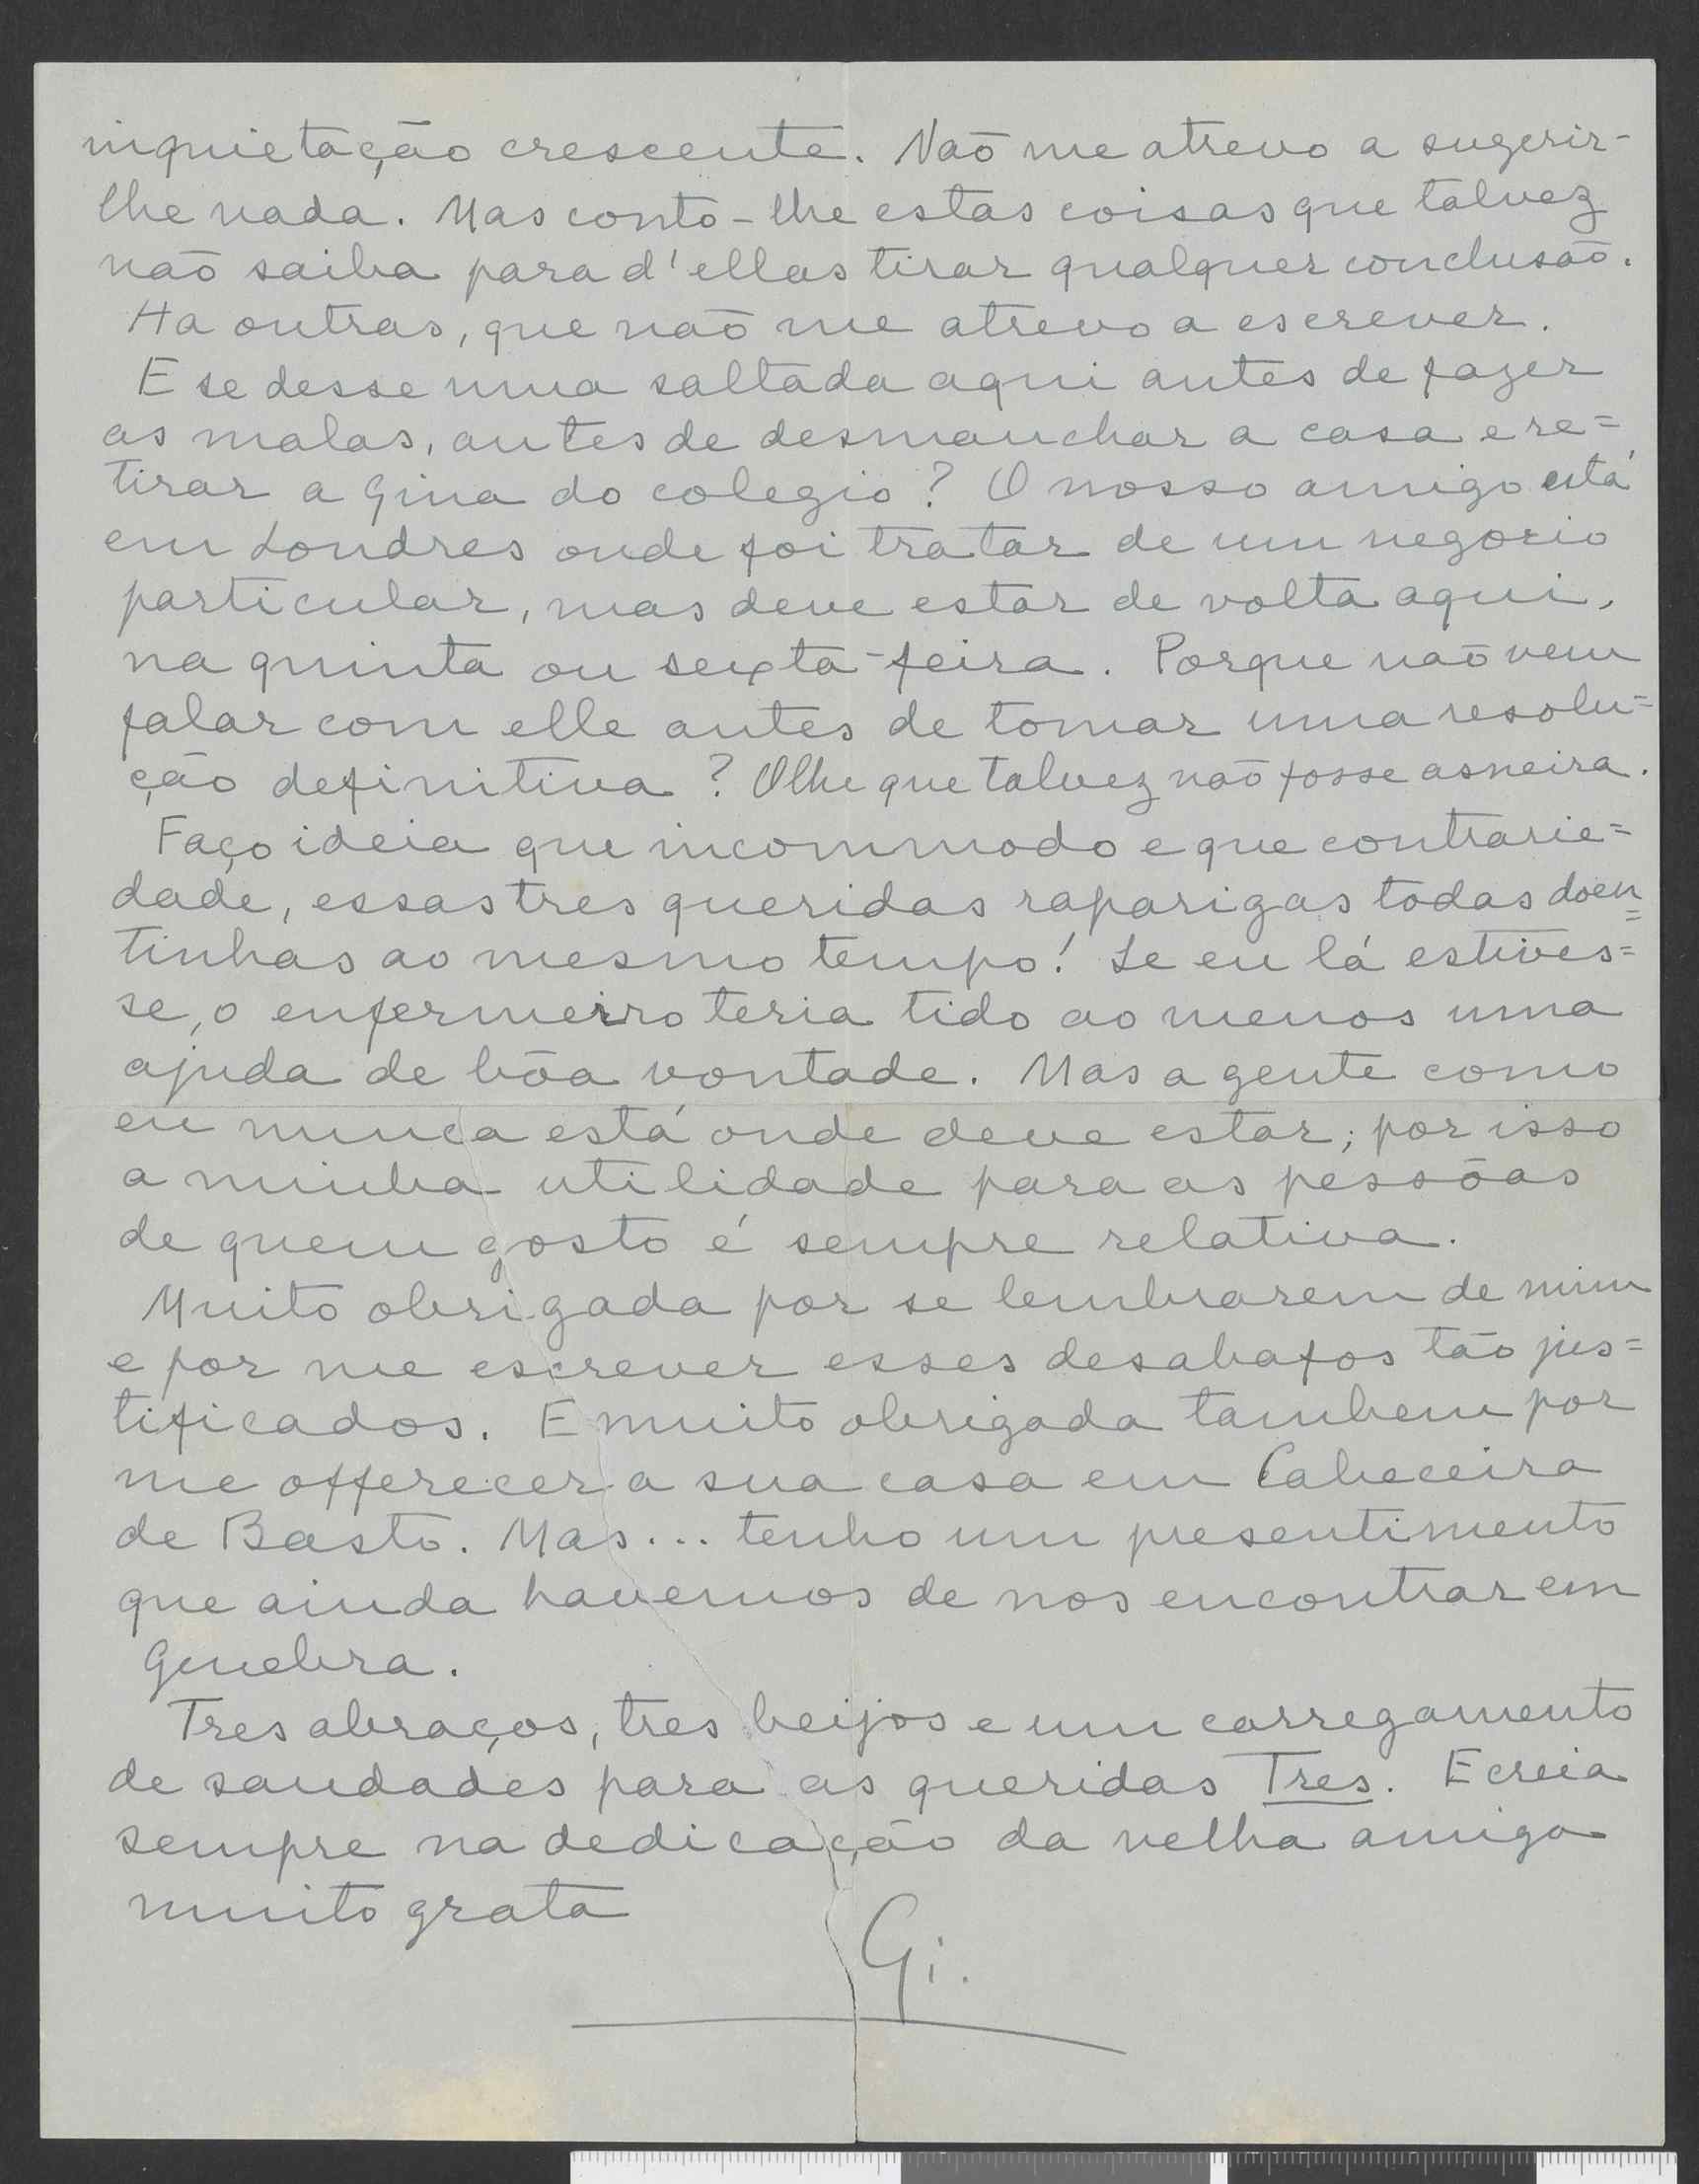 inquietação crescente. Não me atrevo a sugerir-
lhe nada. Mas conto-lhe estas coisas que talvez
não saiba para d'ellas tirar qualquer conclusão.
Ha outras, que não me atrevo a escrever.
E se desse uma saltada aqui antes de fazer
as malas, antes de desmanchar a casa e re=
tirar a Gina do colegio? O nosso amigo está
em Londres onde foi tratar de um negocio
particular, mas deve estar de volta aqui,
na quinta ou sexta-feira. Porque não vem
falar com elle antes de tomar uma resolu=
ção definitiva? Olhe que talvez não fosse asneira.
Faço ideia que incommodo e que contrarie=
dade, essas tres queridas raparigas todas doen=
tinhas ao mesmo tempo! Se eu lá estives=
se, o enfermeiro teria tido ao menos uma
ajuda de bõa vontade. Mas a gente como
eu nunca está onde deve estar; por isso
a minha utilidade para as pessõas
de quem gosto é sempre relativa.
Muito obrigada por se lembrarem de mim
e por me escrever esses desabafos tão jus=
tificados. E muito obrigada tambem por
me offerecer a sua casa em Cabeceira
de Basto. Mas... tenho um presentimento
que ainda havemos de nos encontrar em
Genebra.
Tres abraços, tres beijos e um carregamento
de saudades para as queridas Tres. E creia
sempre na dedicação da velha amiga
muito grata
Gi.